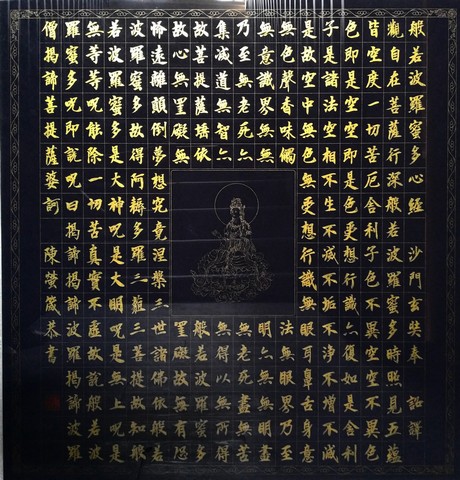 般若波羅蜜多心經 沙門玄奘奉 詔譯
觀自在菩薩行深般若波羅蜜多時照見五蘊
皆空度一切苦厄舍利子色不異空空不異色
色即是空空即是色受想行識亦復如是舍利
子是諸法空相不生不滅不垢不淨不增不減
是故空中無色無受想行識無眼耳鼻舌身意
無色聲香味觸法無眼界乃至
無意識界無無明亦無無明盡
乃至無老死亦無老死盡無苦
集滅道無智亦無得以無所得
故菩提薩埵依般若波羅蜜多
故心無罣礙無罣礙故無有恐
怖遠離顛倒夢想究竟涅槃三世諸佛依般若
波羅蜜多故得阿耨多羅三藐三菩提故知般
若波羅蜜多是大神呪是大明呪是無上呪是
無等等呪能除一切苦真實不虛故說般若波
羅蜜多呪即說呪曰揭諦揭諦波羅揭諦波羅
僧揭諦菩提薩婆訶 陳螢箴恭書